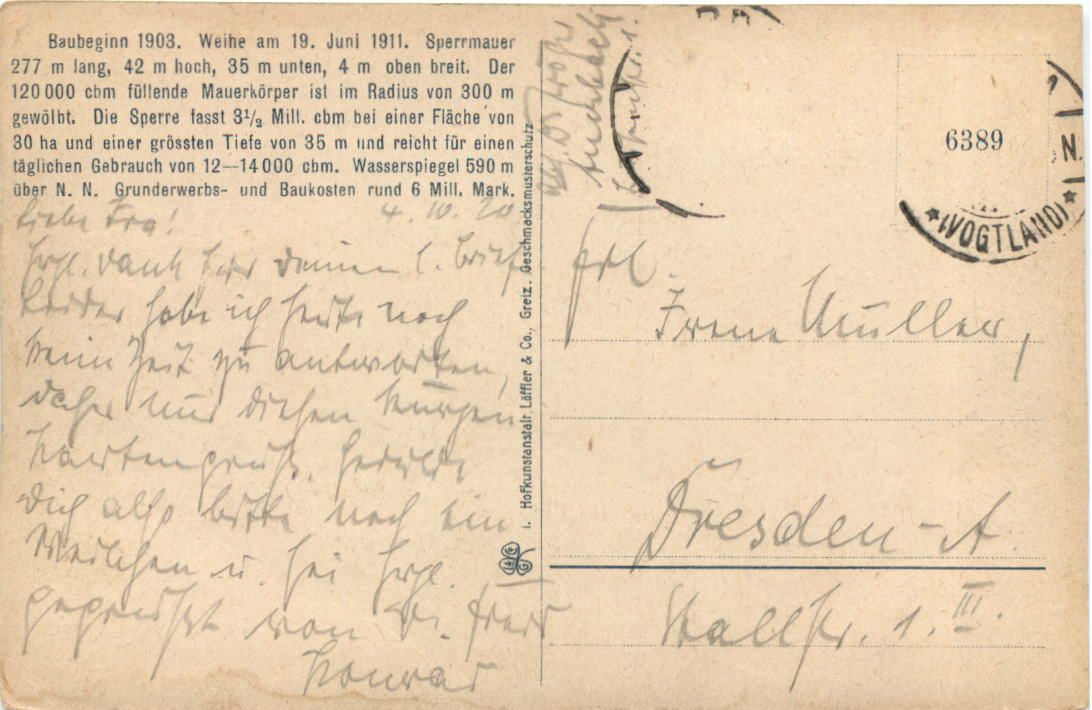 Baubeginn 1903. Weihe am 19. Juni 1911. Sperrmauer
277 m lang, 42 m hoch, 35 m unten, 4 m oben breit. Der
120 000 cbm füllende Mauerkörper ist im Radius von 300 m
gewölbt. Die Sperre fasst 3½ Mill. cbm bei einer Fläche von
30 ha und einer grössten Tiefe von 35 m und reicht für einen
täglichen Gebrauch von 12—14000 cbm. Wasserspiegel 590 m
über N. N. Grunderwerbs- und Baukosten rund 6 Mill. Mark.
4. 10. 20
Liebe
Hrzl. Dank für Deinen l. Brief.
Leider habe ich heute noch
keine Zeit zu antworten,
daher nur diesen kurzen
Kartengruß. Gedulde
Dich also bitte noch ein
Weilchen u. sei hrzl.
gegrüßt von
Konrad
i. Hofkunstanstalt Löffler & Co., Greiz. Geschmacksmusterschutz
6389
N.
(VOGTLAND)
Frl.
Irene Müller,
Dresden-A.
Wallstr. 1. III.